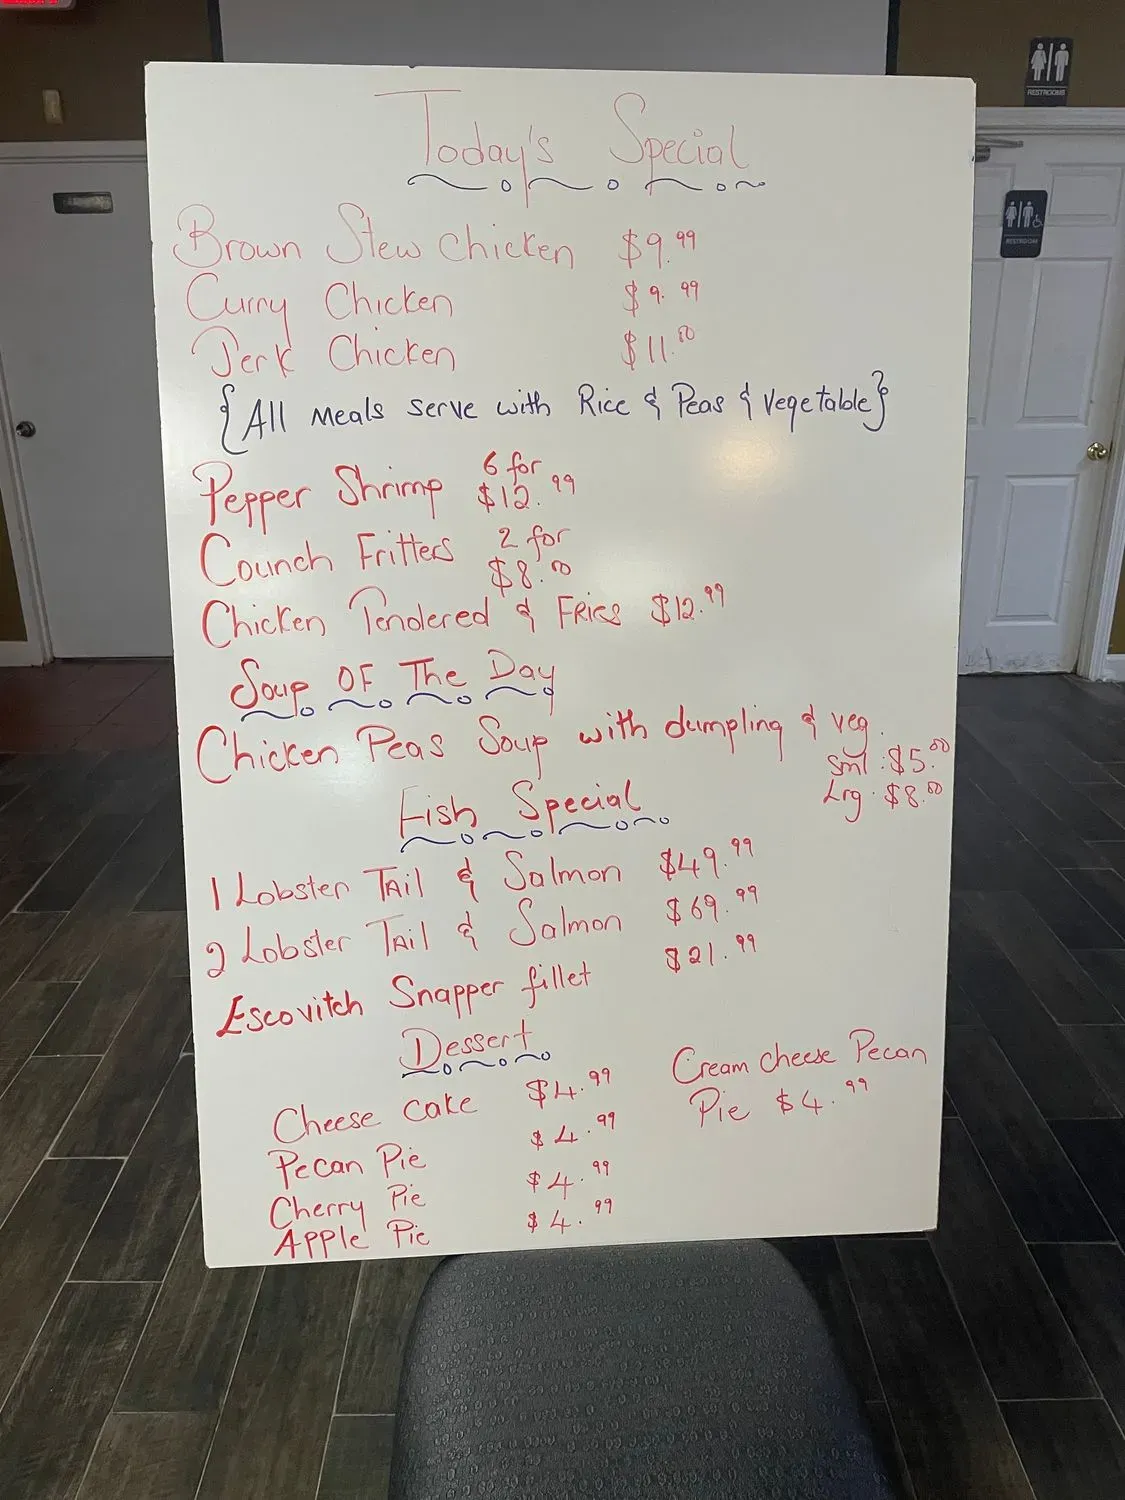 RESTROOMS
RESTROOM
Today's Special
Brown Stew Chicken $9.99
Curry Chicken $9.99
Jerk Chicken $11.00
{All Meals serve with Rice & Peas & vegetable}
Pepper Shrimp 6 for $12.99
Counch Fritters 2 for $8.00
Chicken Tendered & Fries $12.99
Soup OF The Day
Chicken Peas Soup with dumpling & veg.
Sml : $5.00
Lrg : $8.00
Fish Special
1 Lobster Tail & Salmon $49.99
2 Lobster Tail & Salmon $69.99
Escovitch Snapper fillet $21.99
Dessert
Cheese cake $4.99
Pecan Pie $4.99
Cherry Pie $4.99
Apple Pie $4.99
Cream cheese Pecan
Pie $4.99